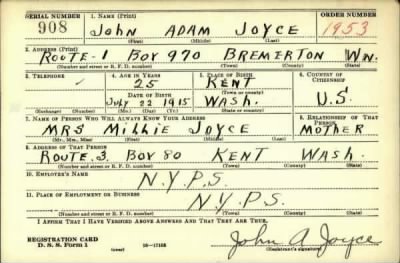 SERIAL NUMBER 1. NAME (Print) ORDER NUMBER
908 John ADAM JOYCE 1953
(First) (Middle) (Last)
2. ADDRESS (Print)
ROUTE-1 BOX 970 BREMERTON WN.
(Number and street or R. F. D. number) (Town) (County) (State)
3. TELEPHONE 4. AGE IN YEARS 5. PLACE OF BIRTH 6. COUNTRY OF CITIZENSHIP
25 KENT
DATE OF BIRTH (Town or county)
July 22 1915 WASH. U.S.
(Exchange) (Number) (Mo.) (Day) (Yr.) (State or country)
7. NAME OF PERSON WHO WILL ALWAYS KNOW YOUR ADDRESS 8. RELATIONSHIP OF THAT PERSON
MRS Millie JOYCE MOTHER
(Mr., Mrs., Miss) (First) (Middle) (Last)
9. ADDRESS OF THAT PERSON
ROUTE.3 BOX 80 KENT WASH.
(Number and street or R. F. D. number) (Town) (County) (State)
10. EMPLOYER'S NAME
N.Y.P.S.
11. PLACE OF EMPLOYMENT OR BUSINESS
N.Y.P.S.
(Number and street or R. F. D. number) (Town) (County) (State)
I AFFIRM THAT I HAVE VERIFIED ABOVE ANSWERS AND THAT THEY ARE TRUE.
REGISTRATION CARD
D. S. S. Form 1 (over) 16-17105 John A. Joyce
(Registrant's signature)